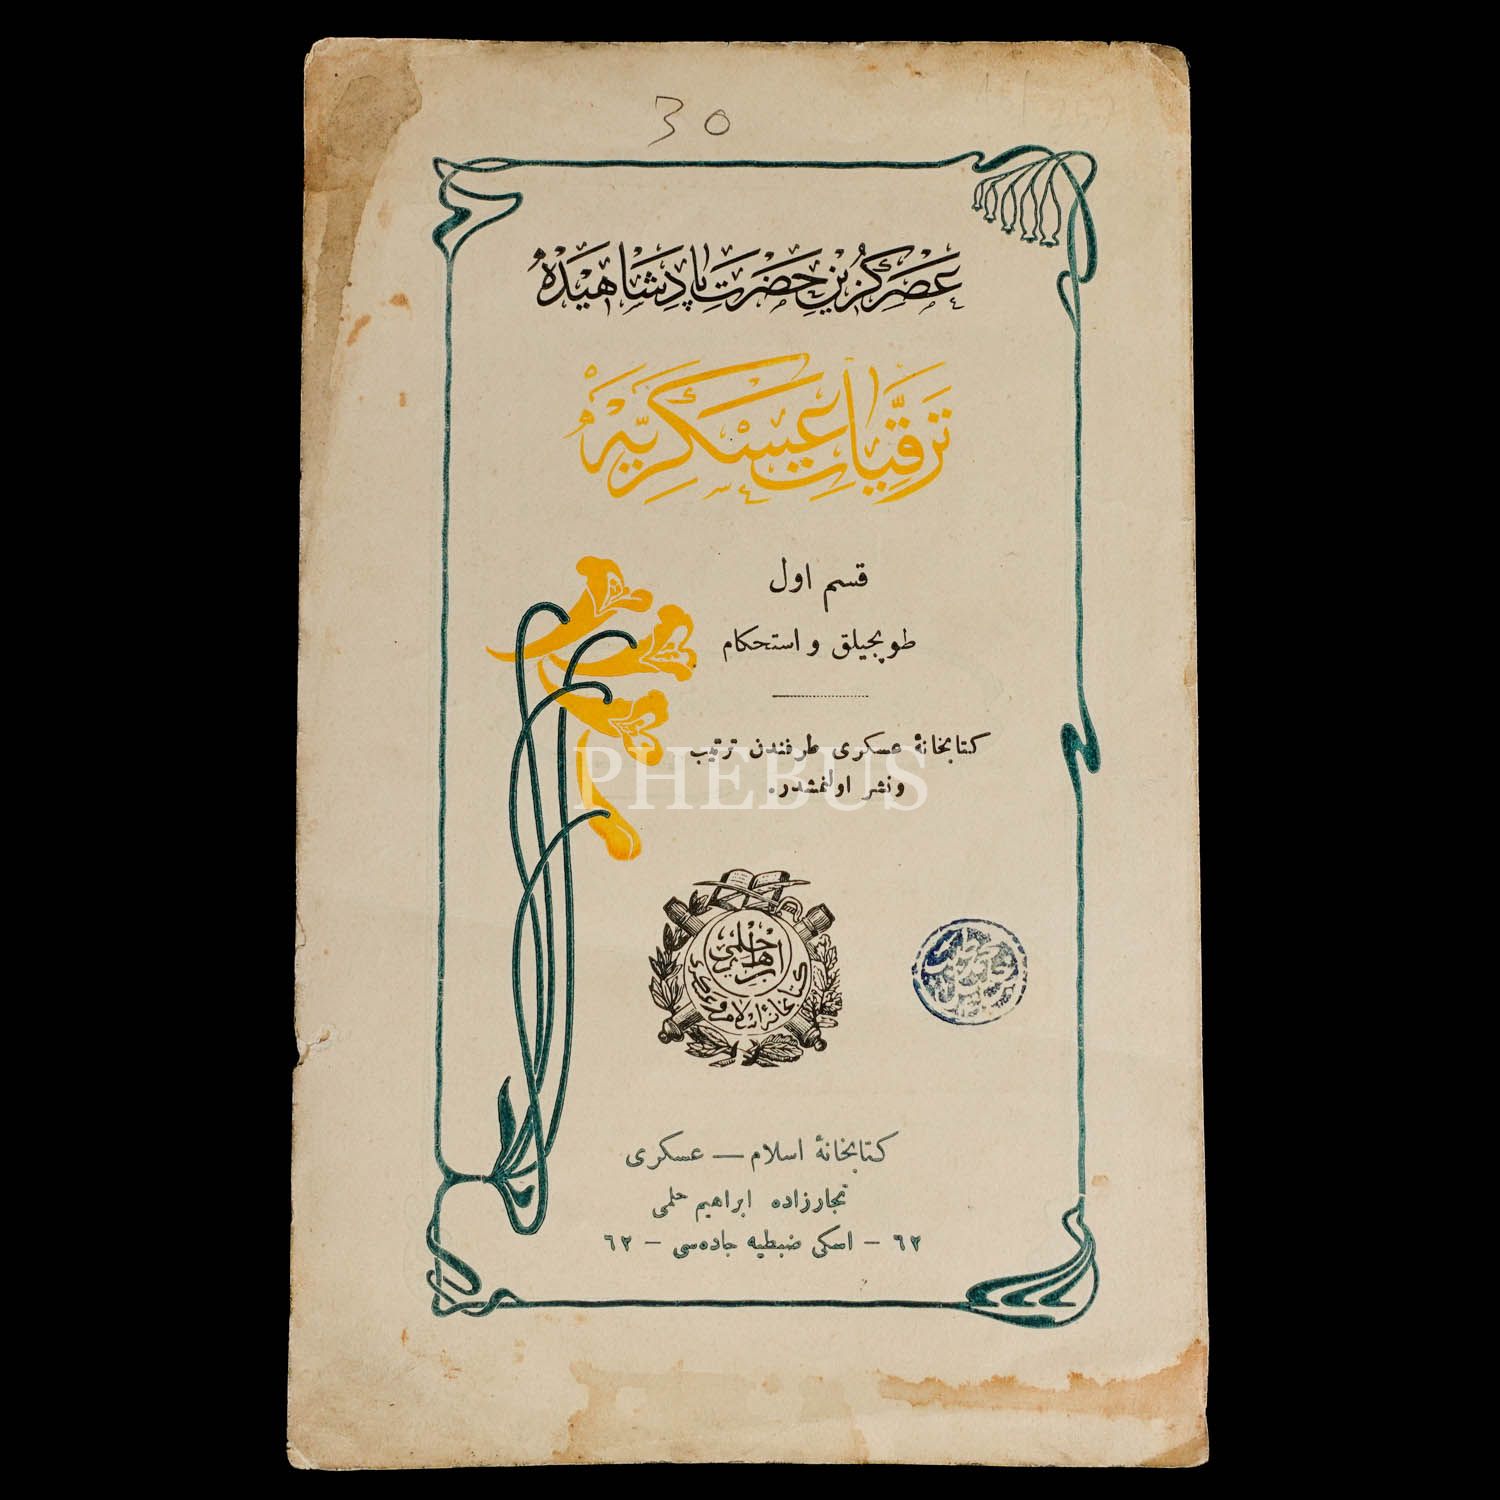 30
عَصْرِ گُزِینِ حَضْرَتِ پَادِشَاهِیدَه
تَرَقِّیَاتِ عَسْكَرِیَّه
قسم اول
طوپجیلق و استحکام
کتابخانهٔ عسکری طرفندن ترتیب
ونشر اولنمشدر.
PHEBUS
ابراهیم حلمی
کتابخانهٔ اسلام و عسکری
کتابخانهٔ اسلام — عسکری
تجارزاده ابراهیم حلمی
٦٢ – اسکی ضبطیه جاده‌سی – ٦٢